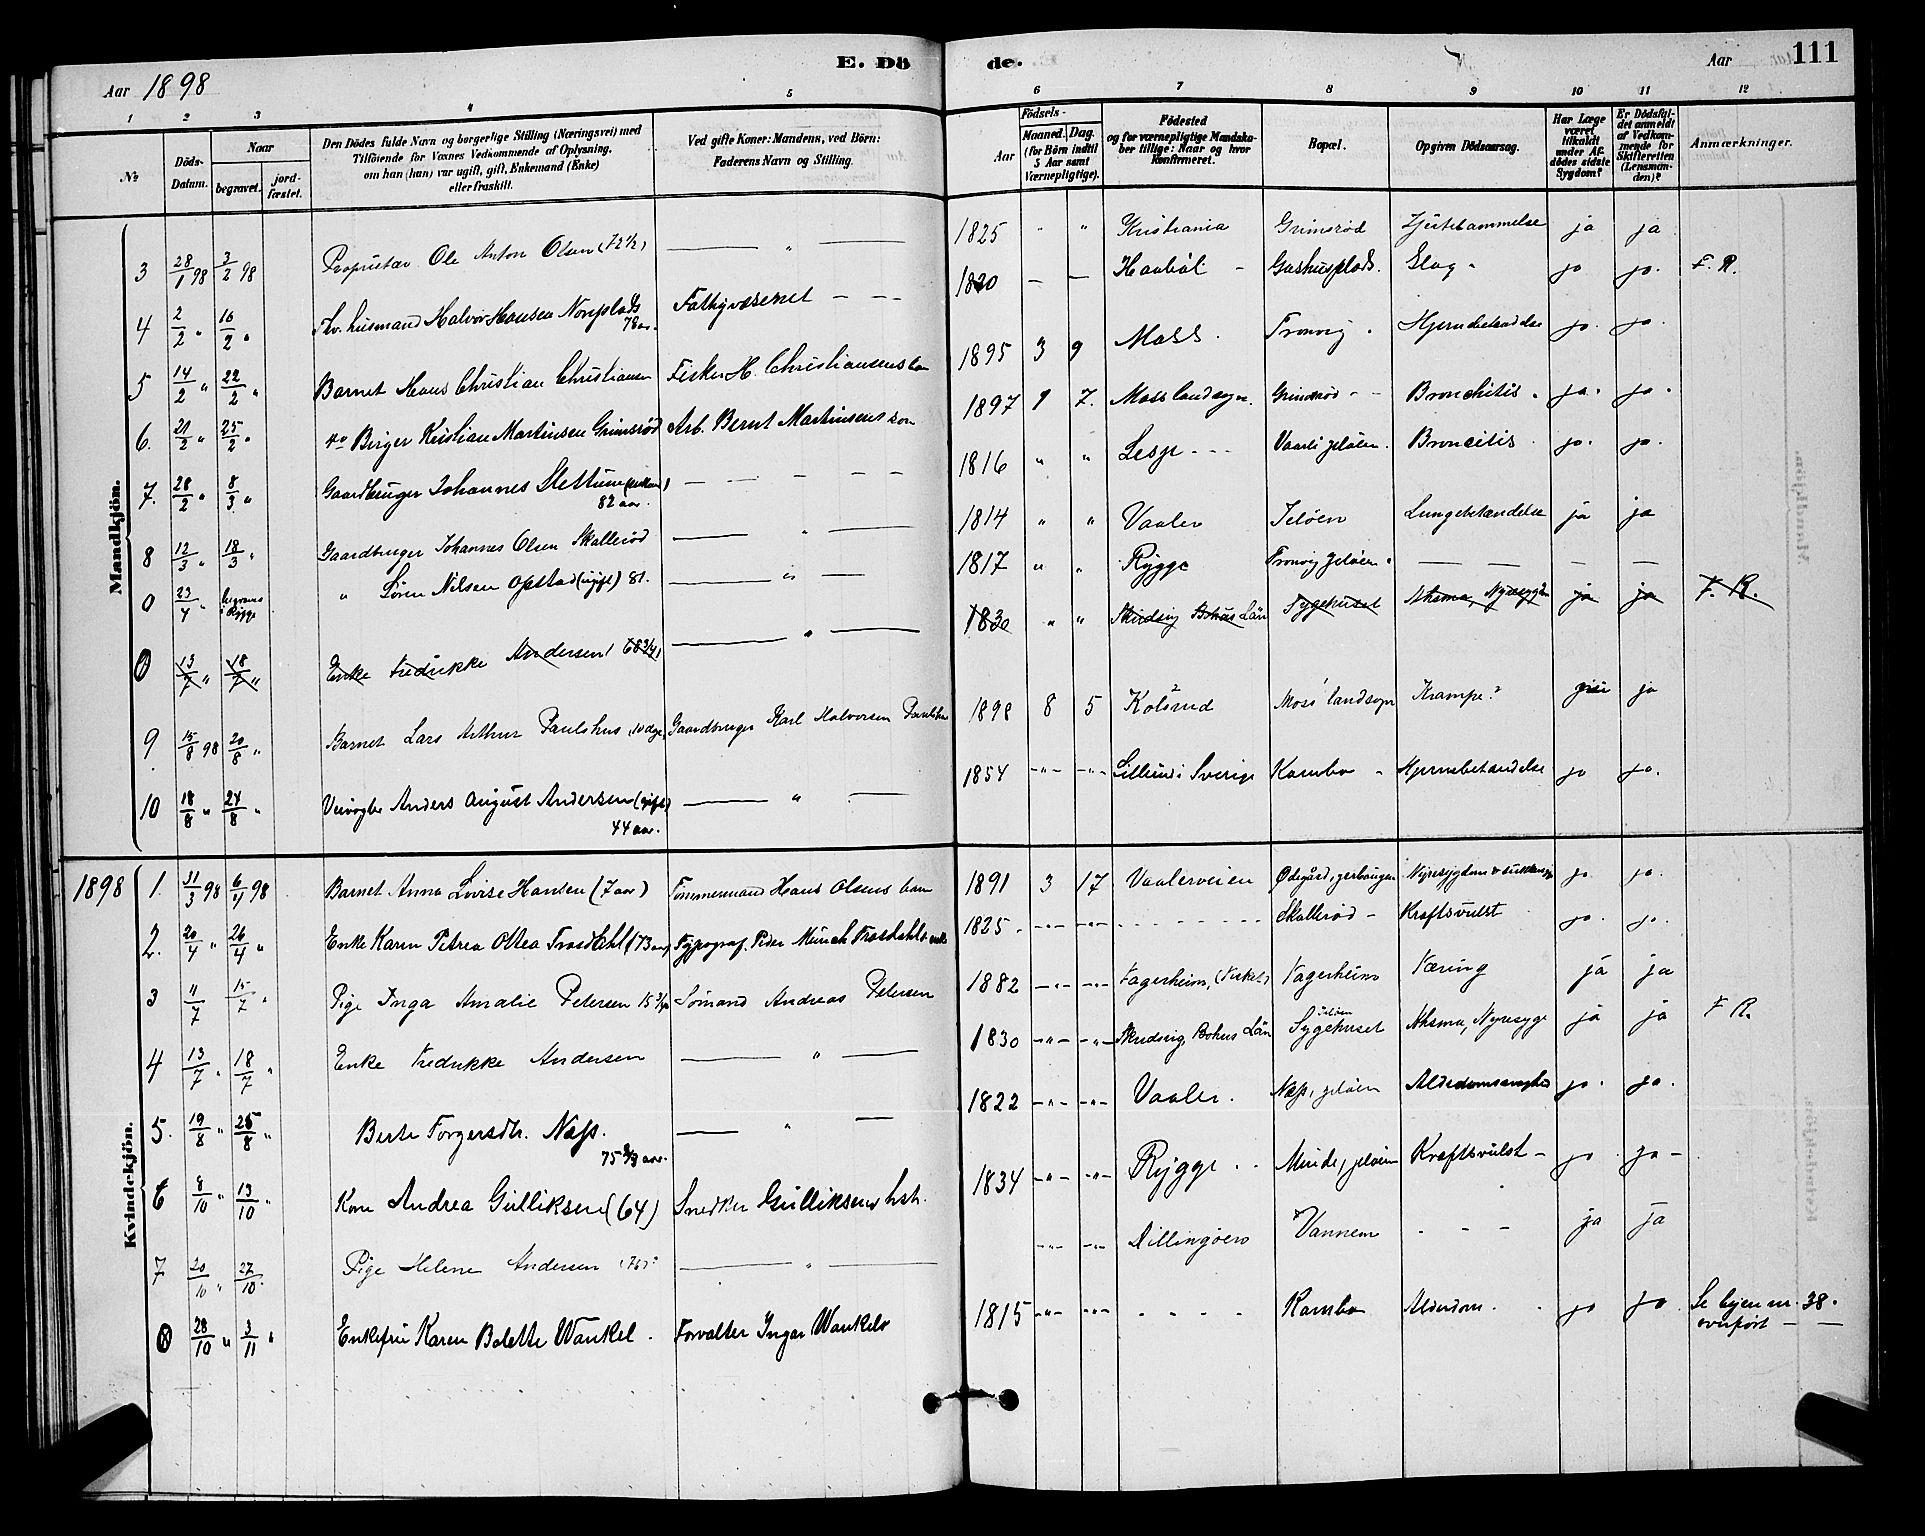 E. Dö
de.
Aar 1898
Aar
111
1 2 3 4 5 6 7 8 9 10 11 12
№
Döds-Datum.
Naar
begravet.
jord-fæstet.
Den Dödes fulde Navn og borgerlige Stilling (Næringsvei) med
Tilföiende for Voxnes Vedkommende af Oplysning,
om han (hun) var ugift, gift, Enkemand (Enke)
eller fraskilt.
Ved gifte Koner: Mandens, ved Börn:
Faderens Navn og Stilling.
Födsels-
Aar
Maaned.
Dag.
(for Börn indtil
5 Aar samt
Værnepligtige).
Födested
og for værnepligtige Mandska-
ber tillige: Naar og hvor
Konfirmeret.
Bopæl.
Opgiven Dödsaarsag.
Har Læge
været
tilkaldt
under Af-
dödes sidste
Sygdom?
Er Dödsfal-
det anmeldt
af Vedkom-
mende for
Skifteretten
(Lensman-
den)?
Anmærkninger.
Mandkjön.
3 28/1 98 3/2 98 Proprietær Ole Anton Olsen (72½) — " — 1825 " " Kristiania Grimsrød Hjertelammelse ja ja
4 2/2 " 10/2 " Fhv. husmand Halvor Hansen Noreplads 78 aar. Fattigvæsenet — — 1820 — — Haabøl - Gashusplads. Slag - ja ja. F. R.
5 14/2 " 22/2 " Barnet Hans Christian Christiansen Fisker H. Christiansens barn 1895 3 9 Moss. Tronvig. Hjernebetændelse ja. ja.
6. 21/2 " 25/2 " do Birger Kristian Martinsen Grimsrød Arb. Bernt Martinsens søn 1897 1 7. Moss landsogn. Grimsrød - - Bronchitis. ja. ja.
7. 28/2 " 8/3 " Gaardbruger Johannes Slettum 82 aar. — — — — 1816 " " Lesje - - - Vaarli Jeløen. Broncitis. ja. ja.
8 12/3 " 18/3 " Gaardbruger Johannes Olsen Skallerød — " — 1814 " " Vaaler Jeløen Lungebetændelse ja ja
0 23/4 " begraves i Rygge " Søren Nilsen Opstad (ugift) 81. — " — 1817 " " Rygge Tronvig Jeløen. — — — —
0 13/7 " 18/7 " Enke Fredrikke Andersen (68 3/4) — " — 1830 " " Skudsvig Bohus Län Sygehuset Athsma, Nyresyge ja ja F. R.
9. 15/8 98 20/8 " Barnet Lars Arthur Paulshus, 10 dage, Gaardbruger Karl Halvorsen Paulshus 1898 8 5 Kolsrud Moss landsogn Krampe? nei ja
10 18/8 " 24/8 " Veivogter Anders August Andersen (gift) 44 aar. — " — 1854 -"- -"- Lillerud i Sverige Kambo - Hjernebetændelse ja ja.
Kvindekjön.
1898 1. 31/3 98 6/4 98 Barnet Anna Lovise Hansen (7 aar) Tømmermand Hans Olsens barn 1891 3 17 Vaalerveien Ødegård, Nyresygdom ja. ja.
2. 20/4 " 26/4 " Enke Karen Petrea Oltea Trosdahl (73 aar) Typograf. Peder Münch Trosdahls enke 1825. -"- -"- - - - Skallerød - Kraftsvulst ja. ja.
3 11/7 15/7 " Pige Inga Amalie Petersen 15 Sømand Andreas Petersen 1882 -"- -"- Fagerheim, Fagerheim Tæring ja ja
4 13/7 " 18/7 " Enke Fredrikke Andersen — " — 1830 -"- -"- Skudsvig, Bohus Län Jeløen Sygehuset Athsma, Nyresyge ja ja F R.
5. 19/8 " 25/8 " Berte Torgersdtr. Næss. 75 aar. — " — 1822 -"- -"- Vaaler. Næss, Jeløen Alderdomssvaghed ja. ja.
6 8/10 " 13/10 " Kone Andrea Gulliksen (64) Snedker Gulliksens hstr. 1834 -"- -"- Rygge . . Minde, Jeløen Kraftsvulst - ja. ja -
7 20/10 " 27/10. Pige Helene Andersen — " — -"- -"- Dillingøen Vannem - - - ja ja
8 28/10 " 3/11 " Enkefru Karen Bolette Wankel. Forvalter Ingar Wankels 1815 -"- -"- - - - - Kambo Alderdom. ja ja Se byen nr. 38. overført — —